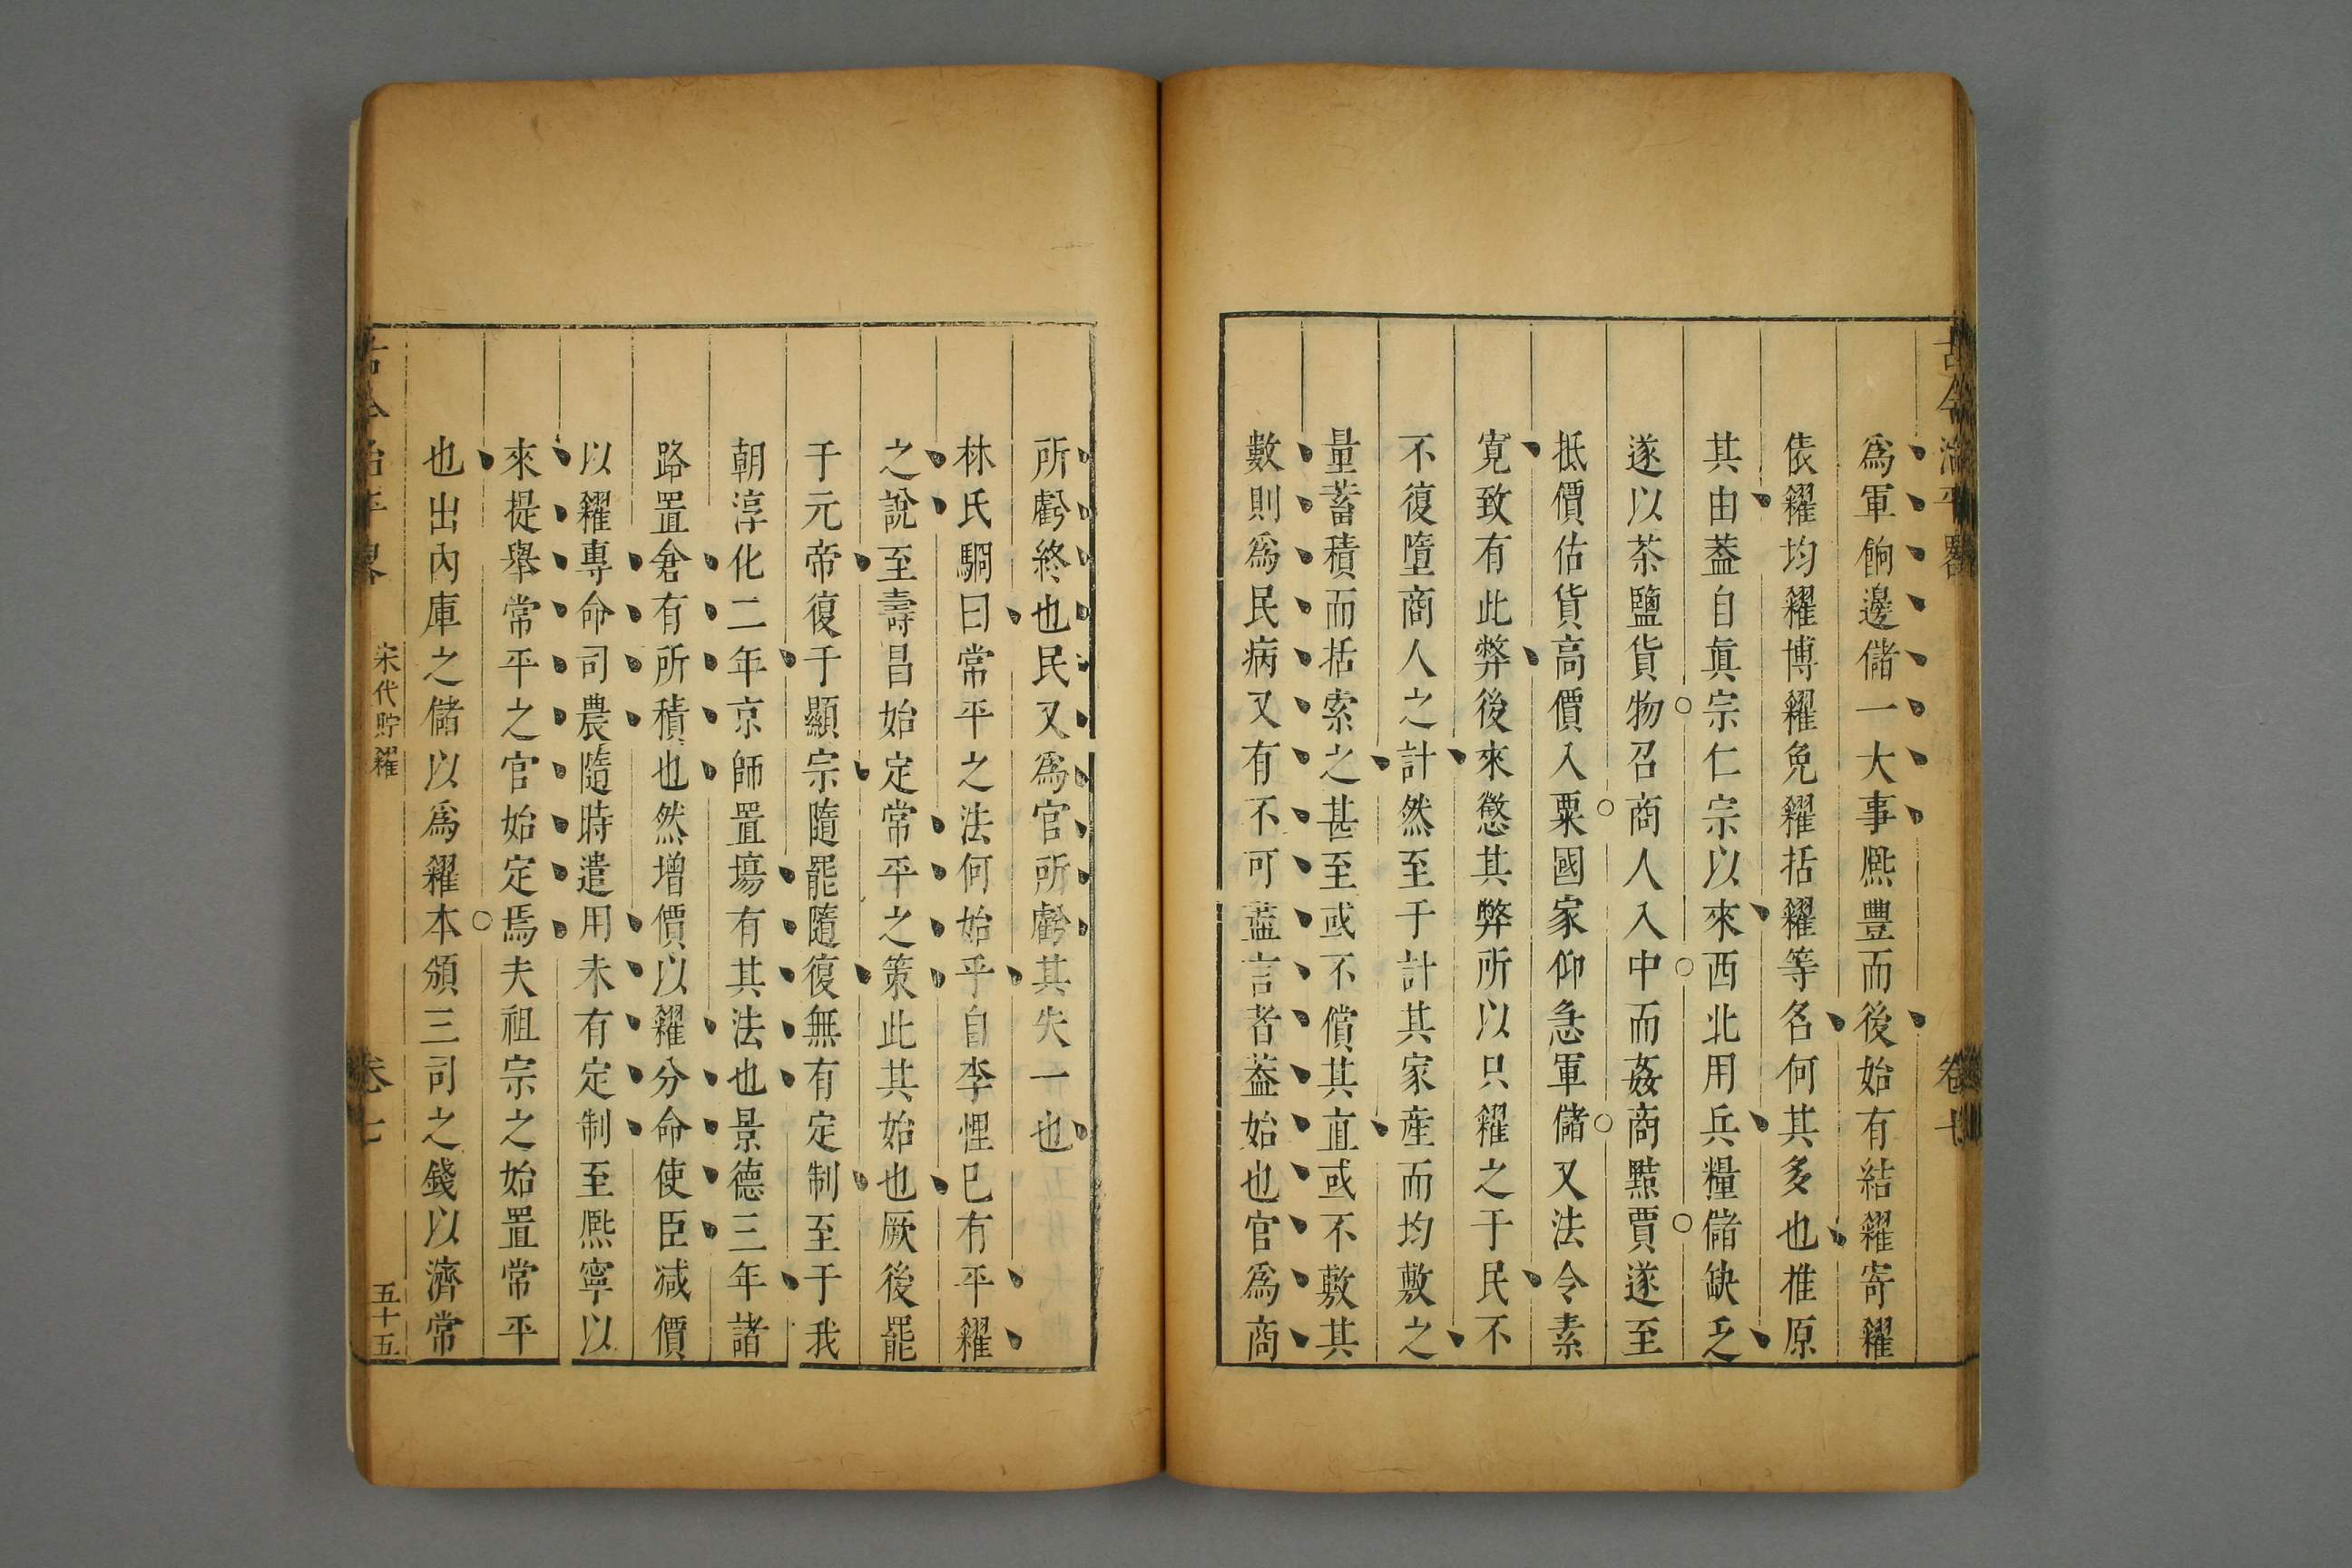 古今治平畧 卷七
爲軍餉邊儲一大事熈豐而後始有結糴寄糴
俵糴均糴博糴免糴括糴等名何其多也推原
其由葢自眞宗仁宗以來西北用兵糧儲缺乏
遂以茶鹽貨物召商人入中而姦商黠賈遂至
抵價估貨高價入粟國家仰急軍儲又法令素
寛致有此弊後來懲其弊所以只糴之于民不
不復墮商人之計然至于計其家產而均敷之
量蓄積而括索之甚至或不償其直或不敷其
數則爲民病又有不可葢言者葢始也官爲商
所虧終也民又爲官所虧其失一也
林氏駧曰常平之法何始乎自李悝巳有平糴
之說至壽昌始定常平之策此其始也厥後罷
于元帝復于顯宗隨罷隨復無有定制至于我
朝淳化二年京師置塲有其法也景德三年諸
路置倉有所積也然增價以糴分命使臣减價
以糴專命司農隨時遣用未有定制至熈寧以
來提舉常平之官始定焉夫祖宗之始置常平
也出內庫之儲以爲糴本頒三司之錢以濟常
古今治平畧 宋代貯糴 卷七 五十五